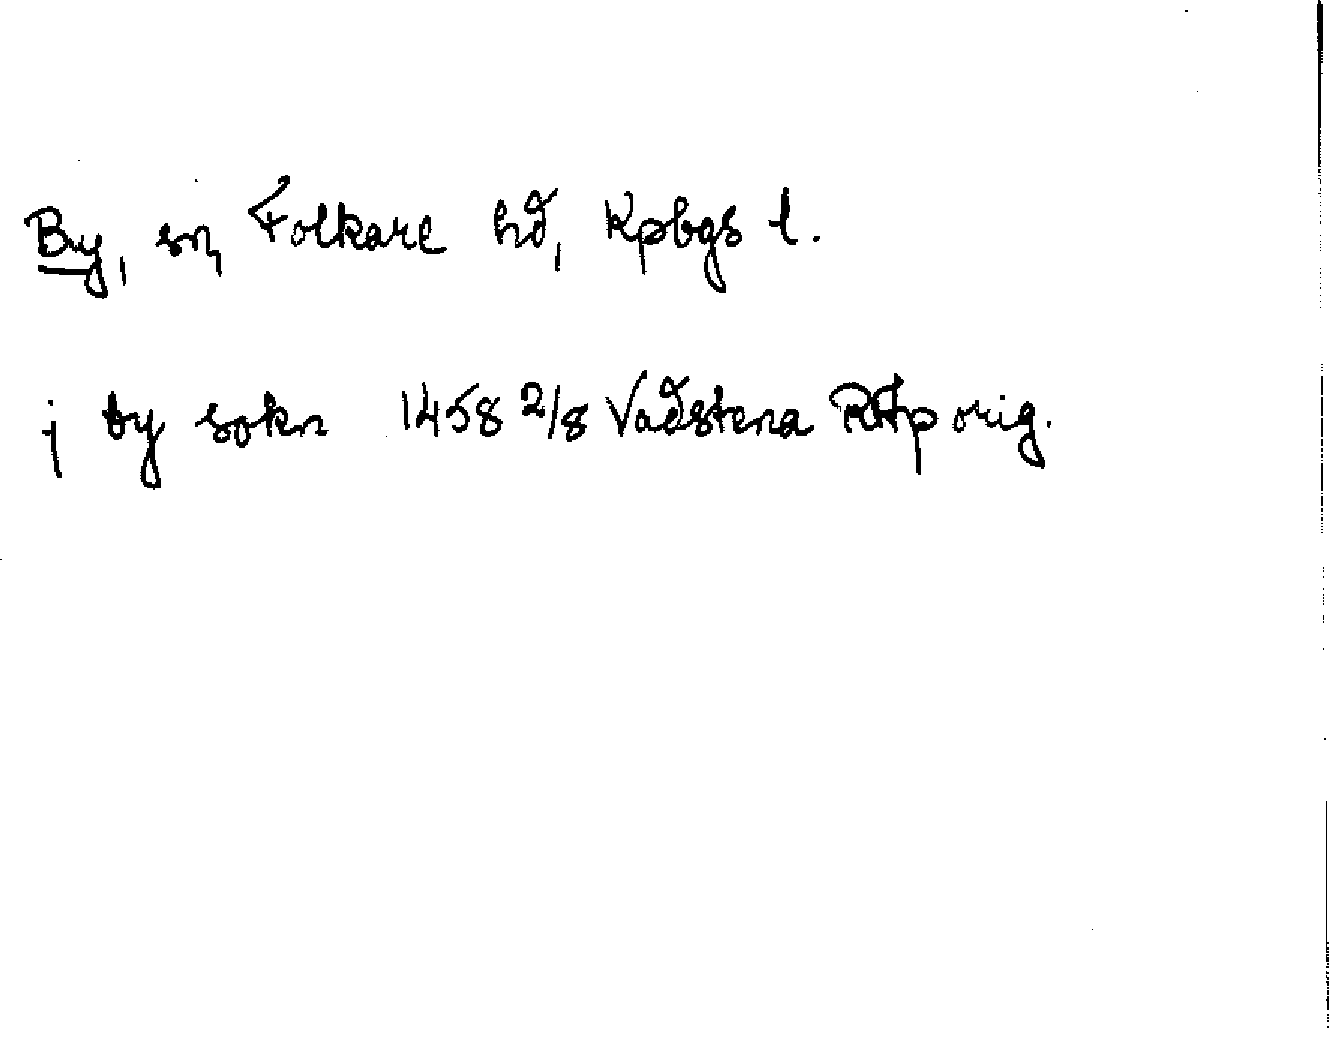 By, sn, Folkare hd, Kpbgs l.
j by sokn 1458 2/8 Vadstena RAp orig.